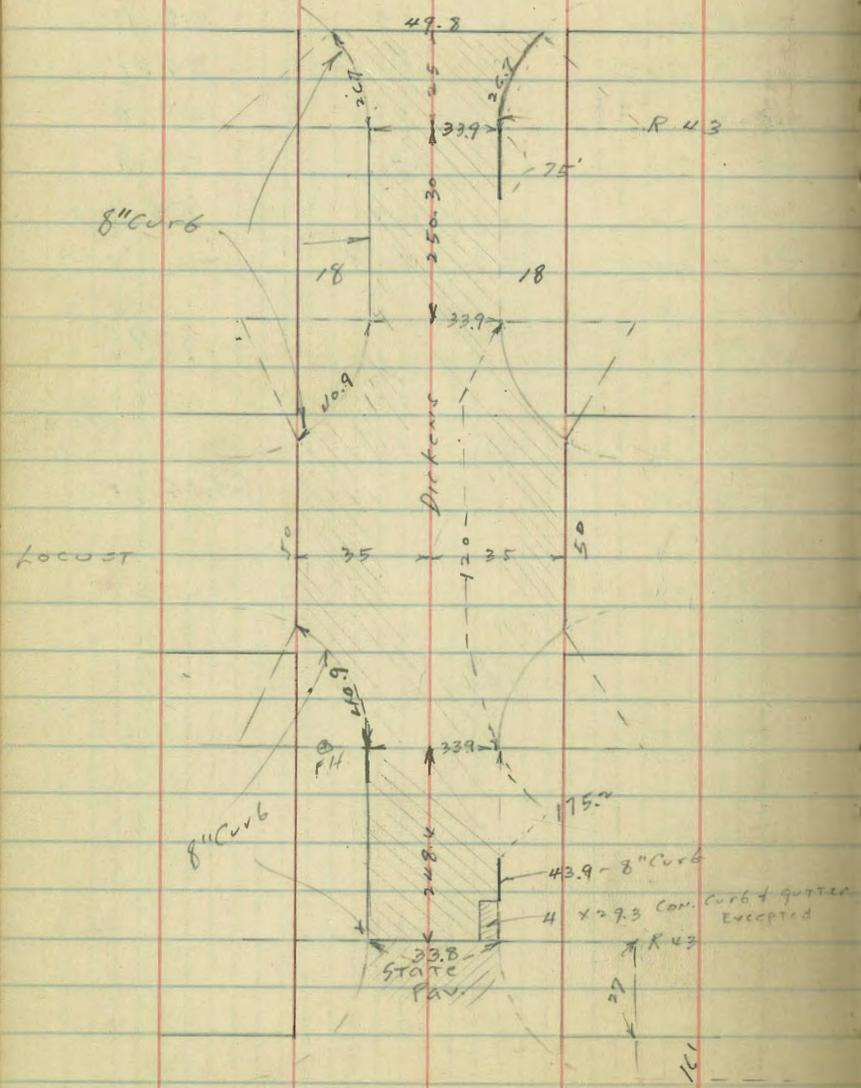 49.8
26.7
25
26.7
33.9
R 43
75'
8" Curb
250.30
18
18
33.9
40.9
Dickens
LOCUST
50
35
120
35
50
40.9
FH
33.9
175.2
8" Curb
248.4
43.9 - 8" Curb
4 x 29.3 Con. Curb & gutter
Excepted
33.8
R 43
State
Pav.
27
161